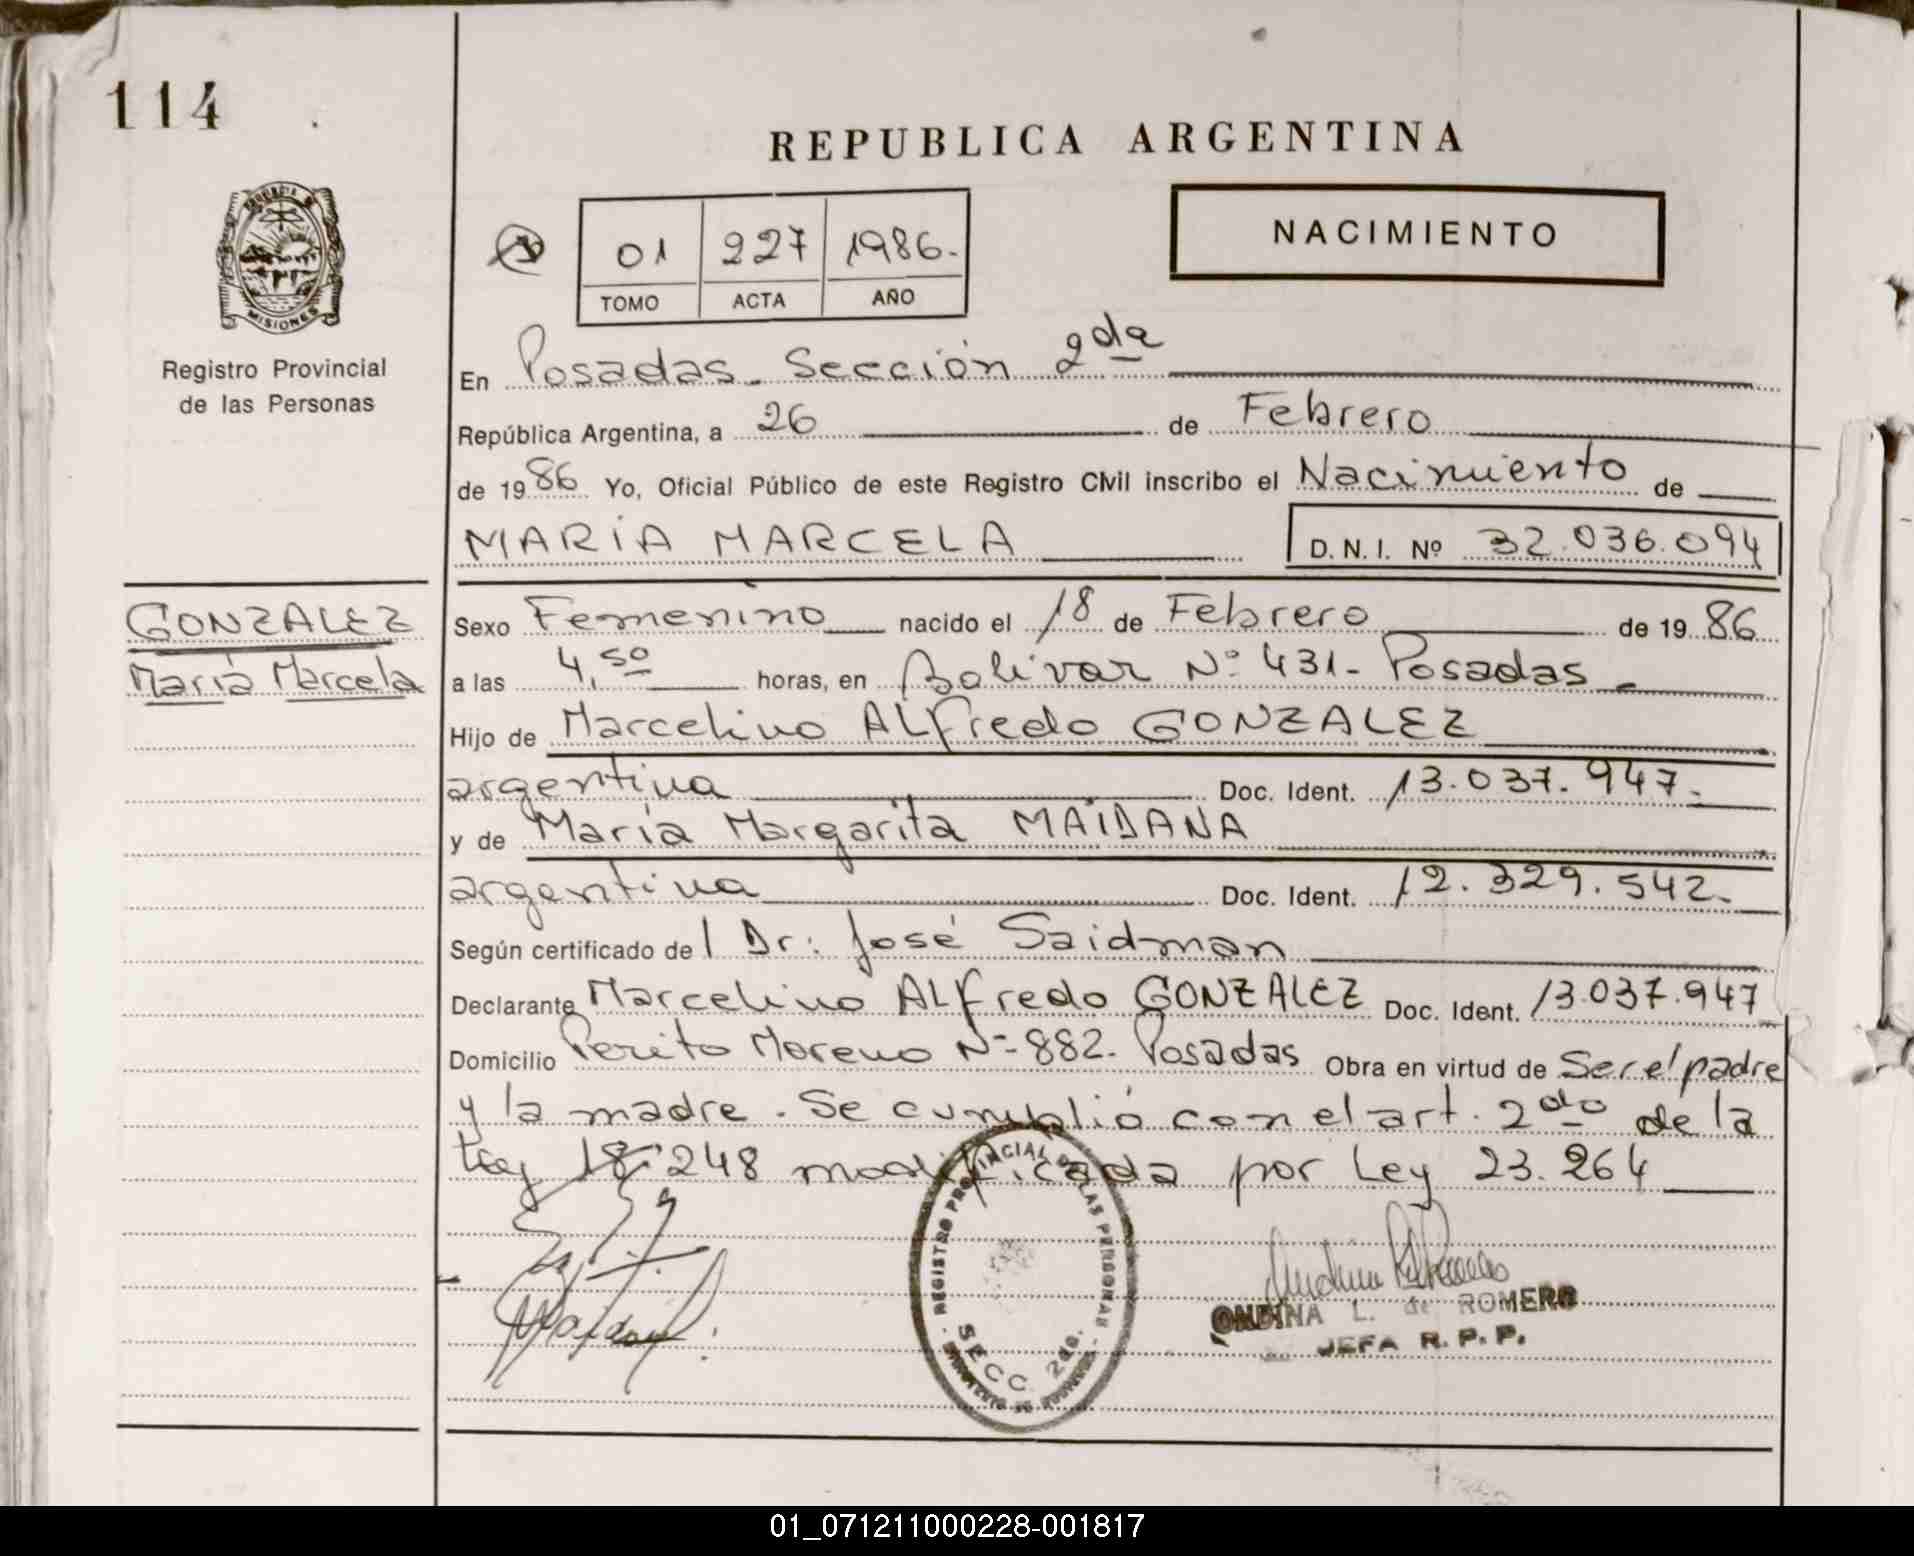 114
REPUBLICA ARGENTINA
01 227 1986.
TOMO ACTA AÑO
NACIMIENTO
MISIONES
Registro Provincial
de las Personas
En Posadas. Sección 2da
República Argentina, a 26 de Febrero
de 1986 Yo, Oficial Público de este Registro Civil inscribo el Nacimiento de
MARIA MARCELA D. N. I. Nº 32.036.094
GONZALEZ
María Marcela
Sexo Femenino nacido el 18 de Febrero de 1986
a las 4,50 horas, en Bolivar Nº 431- Posadas
Hijo de Marcelino ALfredo GONZALEZ
argentina Doc. Ident. 13.037.947.
y de María Margarita MAIDANA
argentina Doc. Ident. 12.329.542.
Según certificado de l Dr: José Saidman
Declarante Marcelino ALfredo GONZALEZ Doc. Ident. 13.037.947
Domicilio Perito Moreno Nº 882. Posadas Obra en virtud de Ser el padre
y la madre. Se cumplió con el art. 2do de la
Ley 18.248 modificada por Ley 23.264
REGISTRO PROVINCIAL DE LAS PERSONAS
SECC. 2da.
ONDINA L. de ROMERO
JEFA R. P. P.
01_071211000228-001817